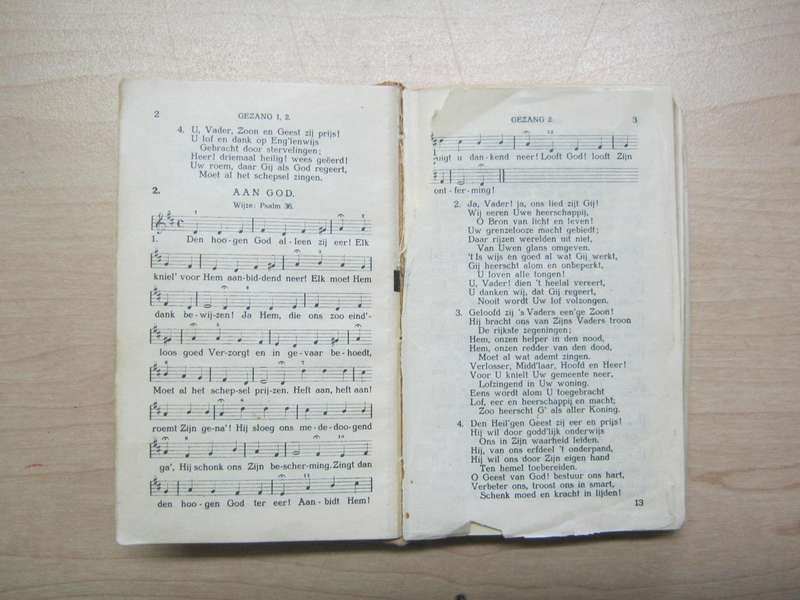 2
GEZANG 1, 2.
4. U, Vader, Zoon en Geest zij prijs!
U lof en dank op Eng'lenwijs
Gebracht door stervelingen;
Heer! driemaal heilig! wees geëerd!
Uw roem, daar Gij als God regeert,
Moet al het schepsel zingen.
2. AAN GOD.
Wijze: Psalm 36.
1. Den hoo-gen God al-leen zij eer! Elk
kniel' voor Hem aan-bid-dend neer! Elk moet Hem
dank be-wij-zen! Ja Hem, die ons zoo eind'-
loos goed Ver-zorgt en in ge-vaar be-hoedt,
Moet al het schep-sel prij-zen. Heft aan, heft aan!
roemt Zijn gena'! Hij sloeg ons me-de-doogend
ga', Hij schonk ons Zijn be-scher-ming. Zingt dan
den hoo-gen God ter eer! Aan-bidt Hem!
GEZANG 2.
3
uigt u dan-kend neer! Looft God! looft Zijn
ont-fer-ming!
2. Ja, Vader! ja, ons lied zijt Gij!
Wij eeren Uwe heerschappij,
O Bron van licht en leven!
Uw grenzelooze macht gebiedt;
Daar rijzen werelden uit niet,
Van Uwen glans omgeven.
't Is wijs en goed al wat Gij werkt,
Gij heerscht alom en onbeperkt,
U loven alle tongen!
U, Vader! dien 't heelal vereert,
U danken wij, dat Gij regeert,
Nooit wordt Uw lof volzongen.
3. Geloofd zij 's Vaders een'ge Zoon!
Hij bracht ons van Zijns Vaders troon
De rijkste zegeningen;
Hem, onzen helper in den nood,
Hem, onzen redder van den dood,
Moet al wat ademt zingen.
Verlosser, Midd'laar, Hoofd en Heer!
Voor U knielt Uw gemeente neer,
Lofzingend in Uw woning.
Eens wordt alom U toegebracht
Lof, eer en heerschappij en macht;
Zoo heerscht G' als aller Koning.
4. Den Heil'gen Geest zij eer en prijs!
Hij wil door godd'lijk onderwijs
Ons in Zijn waarheid leiden.
Hij, van ons erfdeel 't onderpand,
Hij wil ons door Zijn eigen hand
Ten hemel toebereiden.
O Geest van God! bestuur ons hart,
Verbeter ons, troost ons in smart,
Schenk moed en kracht in lijden!
13